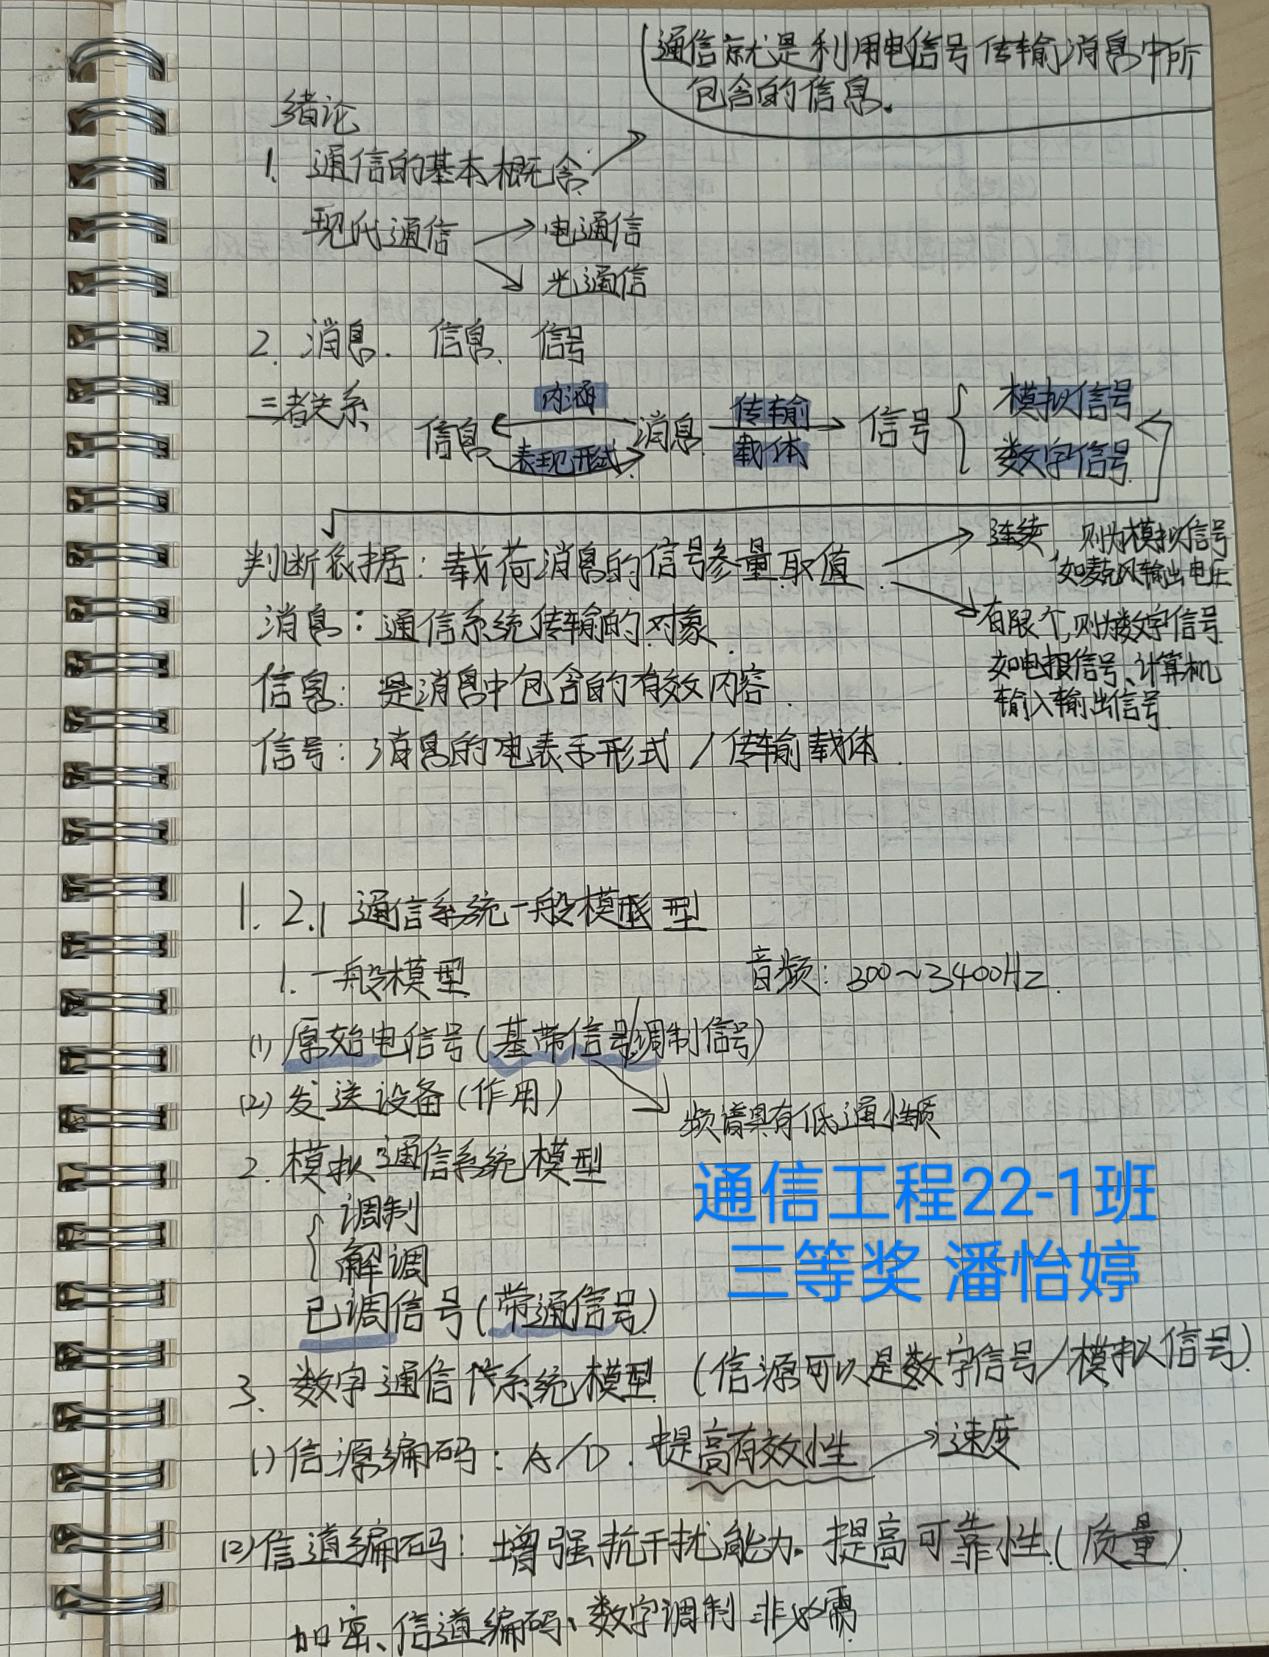 通信就是利用电信号传输消息中所
包含的信息。
绪论
1. 通信的基本概念
现代通信 电通信
光通信
2. 消息、信息、信号
三者关系
信息 内涵 表现形式 消息 传输 载体 信号 模拟信号
数字信号
判断依据：载荷消息的信号参量取值
连续，则为模拟信号
如麦克风输出电压
有限个，则为数字信号
如电报信号、计算机
输入输出信号
消息：通信系统传输的对象.
信息：是消息中包含的有效内容.
信号：消息的电表示形式/传输载体.
1.2.1 通信系统一般模型
1. 一般模型 音频：300~3400Hz.
(1) 原始电信号(基带信号/调制信号)
(2) 发送设备(作用) 频谱具有低通性质
2. 模拟通信系统模型
调制
解调
已调信号(带通信号)
通信工程22-1班
三等奖 潘怡婷
3. 数字通信系统模型 (信源可以是数字信号/模拟信号)
(1) 信源编码：A/D. 提高有效性 速度
(2) 信道编码：增强抗干扰能力。提高可靠性.(质量)
加密、信道编码、数字调制非必需.